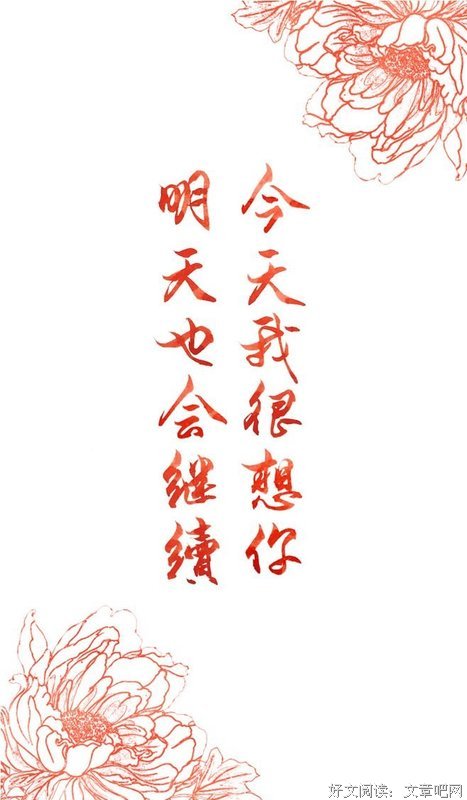 今天我很想你
明天也会继續
好文阅读：文章吧网